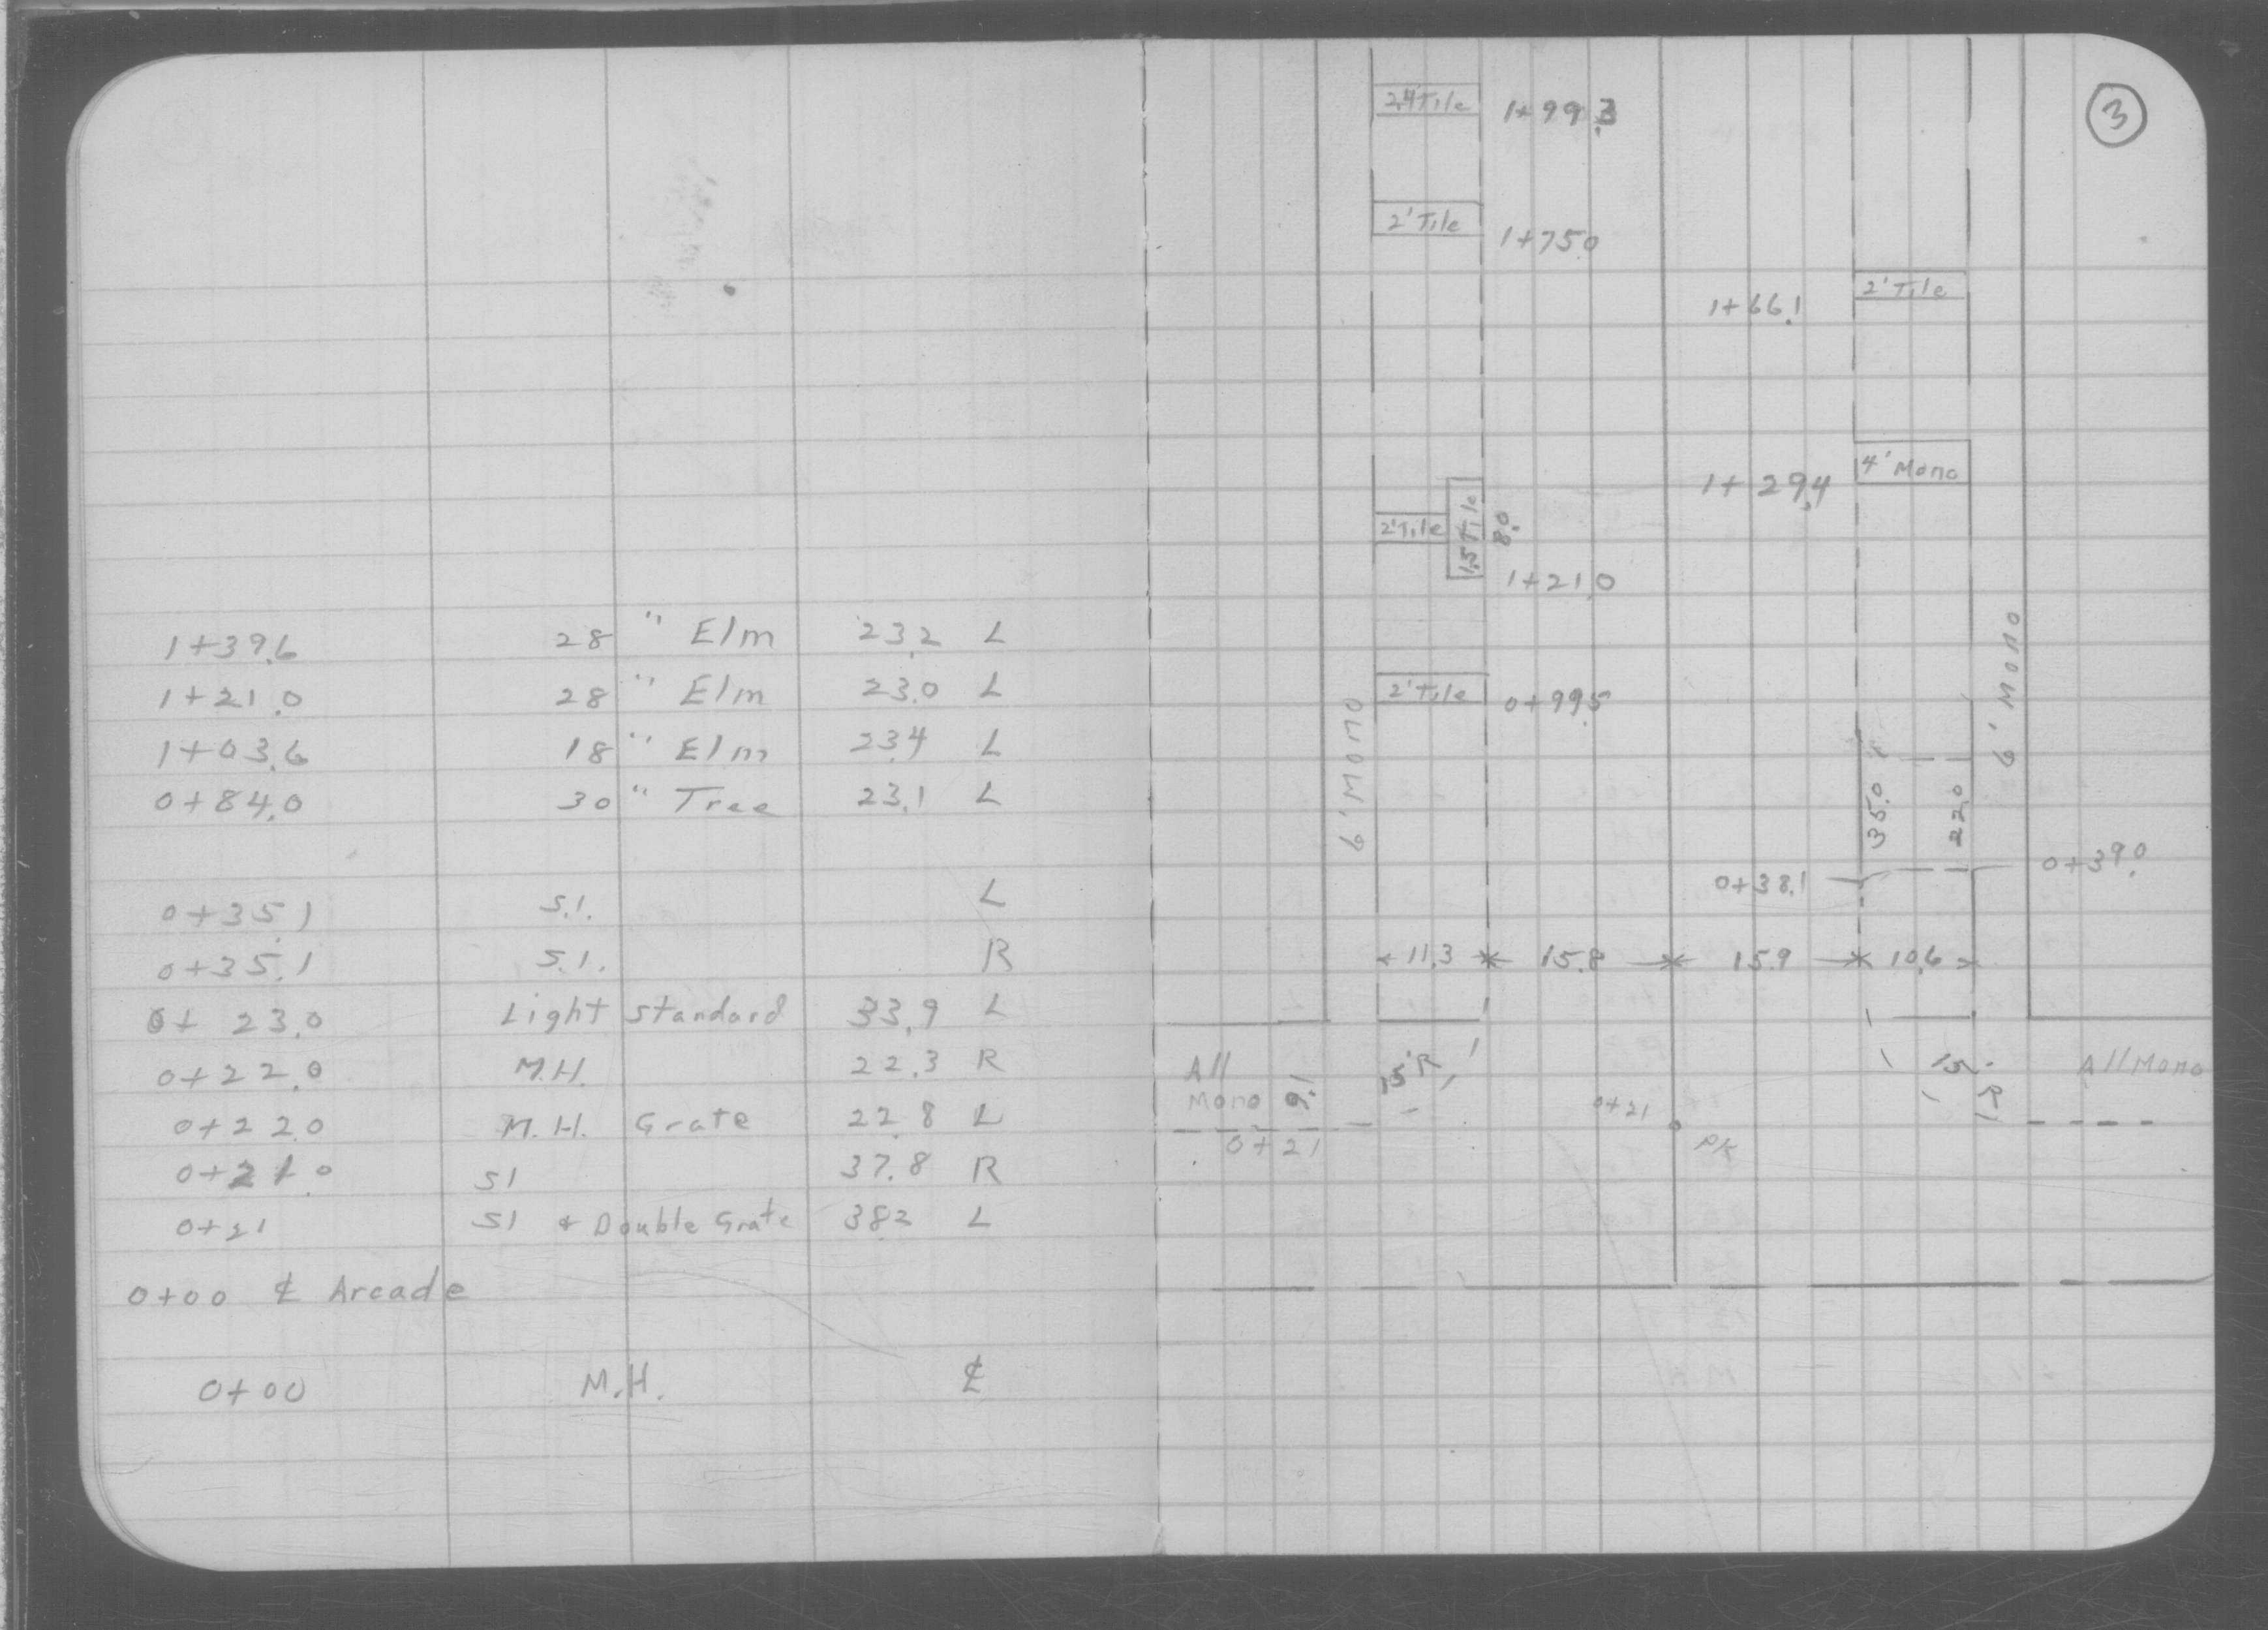 1+39.6 28 " Elm 23.2 L
1+21.0 28 " Elm 23.0 L
1+03.6 18 " Elm 23.4 L
0+84.0 30 " Tree 23.1 L
0+35.1 S.I. L
0+35.1 S.I. R
0+23.0 Light Standard 33.9 L
0+22.0 M.H. 22.3 R
0+22.0 M.H. Grate 22.8 L
0+21.0 SI 37.8 R
0+21 SI & Double Grate 38.2 L
0+00 ℄ Arcade
0+00 M.H. ℄
3
2.4' Tile 1+99.3
2' Tile 1+75.0
1+66.1 2' Tile
1+29.4 4' Mono
2' Tile 1.5' Tile 8.0
1+21.0
2' Tile 0+99.5
6' Mono
6' Mono
35.0 22.0
0+38.1 0+39.0
11.3 15.8 15.9 10.6
All Mono 9.1 15'R 15' R All Mono
0+21 0+21 PK